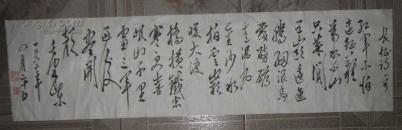 长征诗一首
红军不怕
远征难
万水千山
只等闲
五岭逶迤
腾细浪乌
蒙磅礴
走泥丸
金沙水
拍云崖
暖大渡
桥横铁索
寒更喜
岷山千里
雪三军
过后
尽开
颜
毛泽东
四月二十日